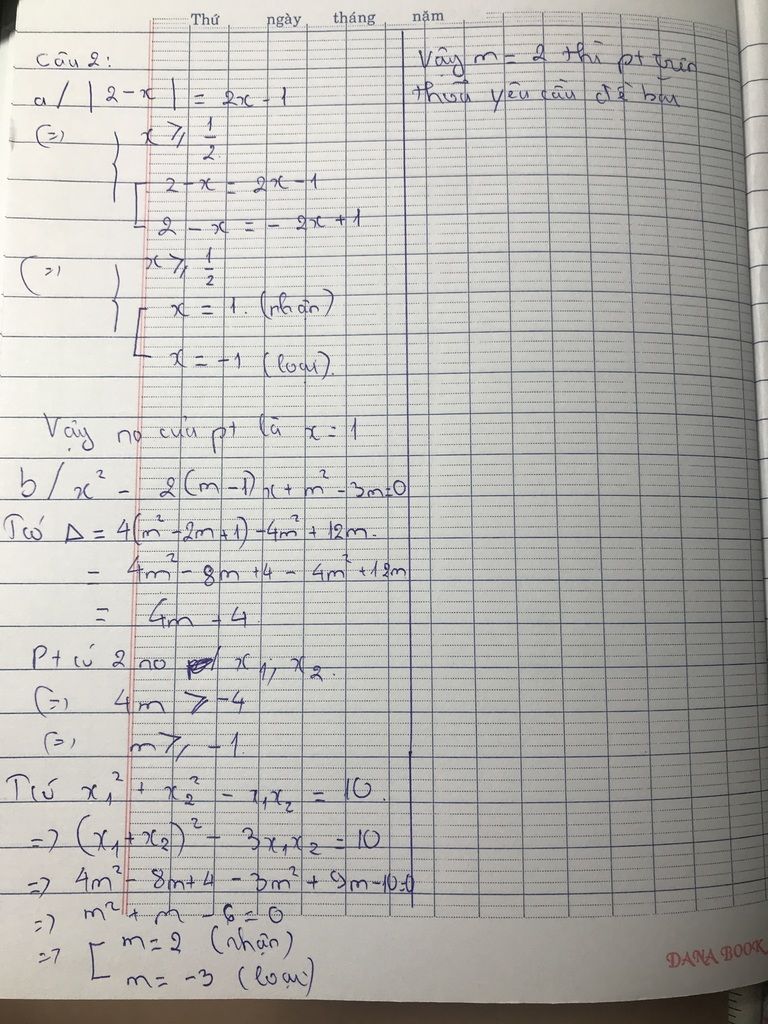 Thứ ngày tháng năm
Câu 2:
a/ |2-x| = 2x-1
(=) { x ≥ 1/2
[ 2-x = 2x-1
2-x = -2x+1
(=) { x ≥ 1/2
[ x = 1. (nhận)
x = -1 (loại).
Vậy no của pt là x = 1
b/ x² - 2(m-1)x + m² - 3m=0
T có Δ = 4(m²-2m+1)-4m²+12m.
= 4m² - 8m +4 - 4m² +12m
= 4m + 4
Pt có 2 no x₁, x₂.
(=) 4m ≥ -4
(=) m ≥ -1
T có x₁² + x₂² - x₁x₂ = 10
=> (x₁+x₂)² - 3x₁x₂ = 10
=> 4m² - 8m+4 - 3m² + 9m-10=0
=> m² + m - 6 = 0
=> [ m = 2 (nhận)
m = -3 (loại)
Vậy m = 2 thì pt trên
thoả yêu cầu đề bài
DANA BOOK